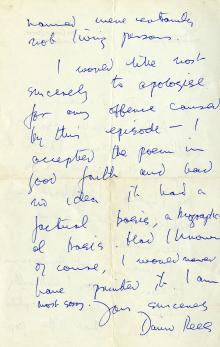 named were certainly
not living persons.
I would like most
sincerely to apologise
for any offence caused
by this episode – I
accepted the poem in
good faith and had
no idea it had a
factual basis, a
basis. Had I known
of course, I would never
have printed it. I am
most sorry. Yours sincerely
David Rees